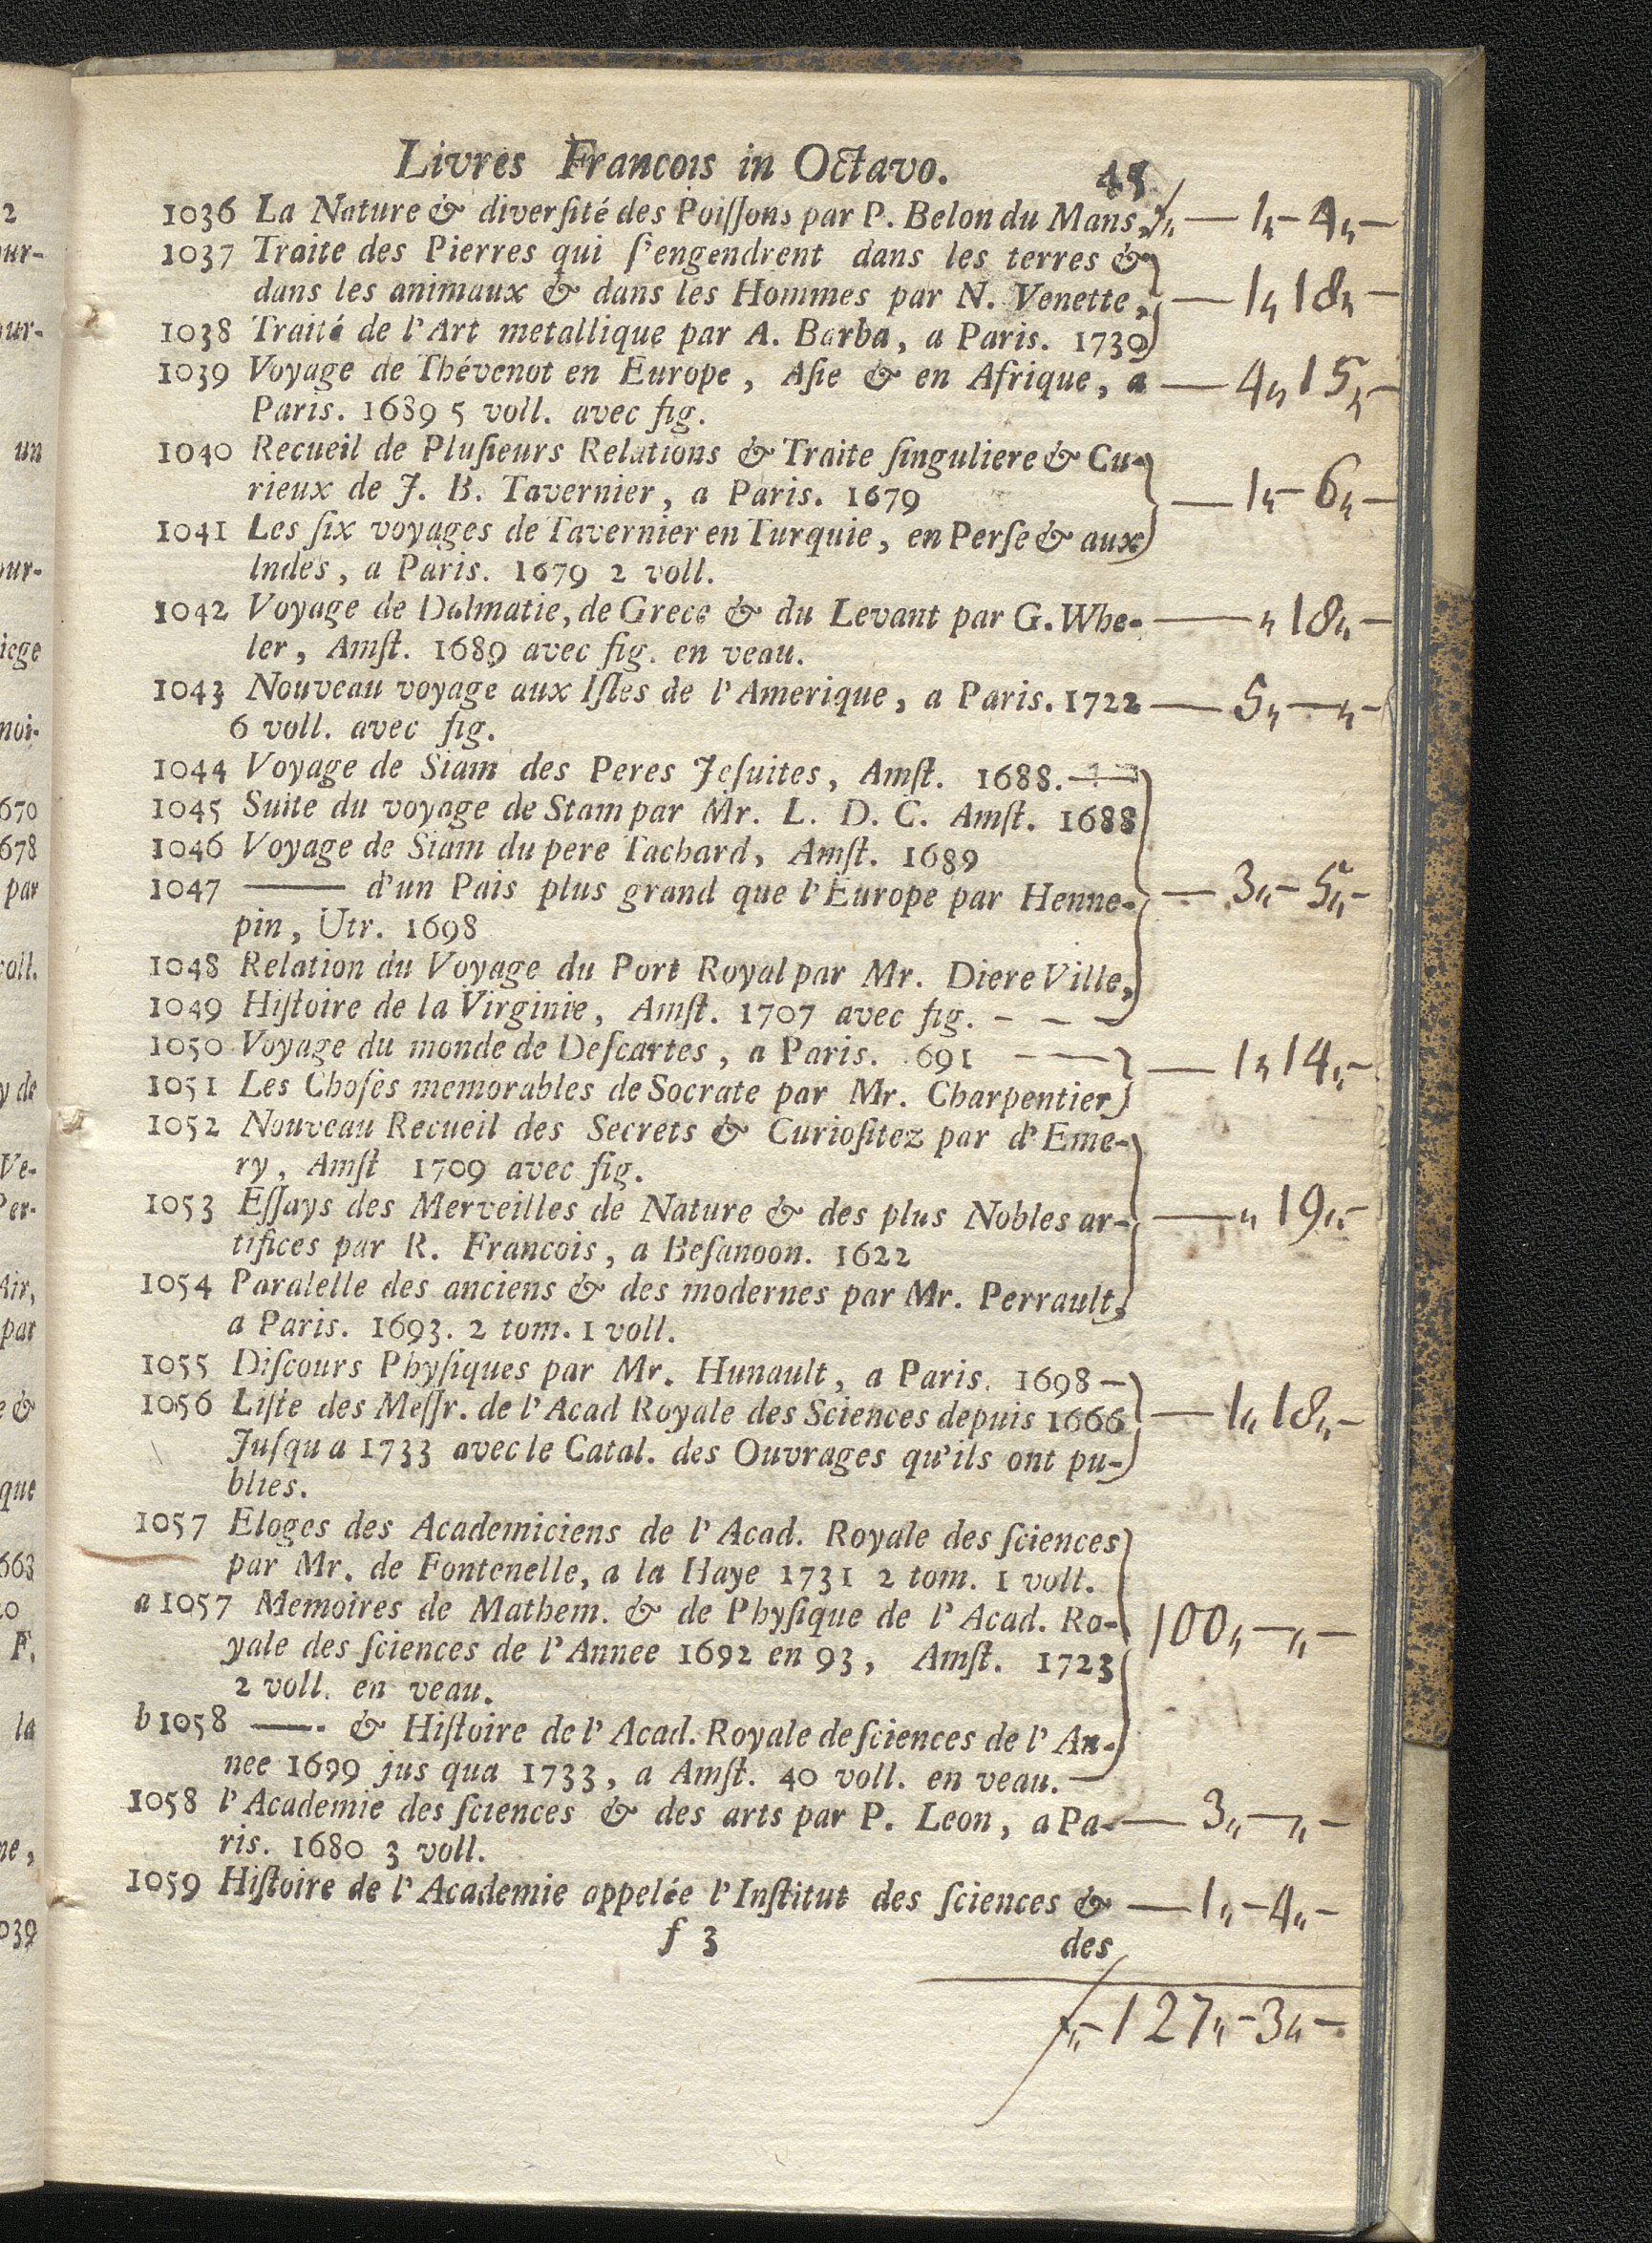 Livres Francois in Octavo. 45
1036 La Nature & diversité des Poissons par P. Belon du Mans, — 1„ - 4„ -
1037 Traite des Pierres qui s'engendrent dans les terres &
dans les animaux & dans les Hommes par N. Venette, — 1„ 18„ -
1038 Traité de l'Art metallique par A. Barba, a Paris. 1730
1039 Voyage de Thévenot en Europe, Asie & en Afrique, a — 4„ 15„ -
Paris. 1689 5 voll. avec fig.
1040 Recueil de Plusieurs Relations & Traite singuliere & Cu-
rieux de J. B. Tavernier, a Paris. 1679 — 1„ - 6„ -
1041 Les six voyages de Tavernier en Turquie, en Perse & aux
Indes, a Paris. 1679 2 voll.
1042 Voyage de Dalmatie, de Grece & du Levant par G. Whe- — „ 18„ -
ler, Amst. 1689 avec fig. en veau.
1043 Nouveau voyage aux Isles de l'Amerique, a Paris. 1722 — 5„ — „ -
6 voll. avec fig.
1044 Voyage de Siam des Peres Jesuites, Amst. 1688. —
1045 Suite du voyage de Stam par Mr. L. D. C. Amst. 1688
1046 Voyage de Siam du pere Tachard, Amst. 1689
1047 —— d'un Pais plus grand que l'Europe par Henne- — 3„ - 5„ -
pin, Utr. 1698
1048 Relation du Voyage du Port Royal par Mr. Diere Ville,
1049 Histoire de la Virginie, Amst. 1707 avec fig. - - -
1050 Voyage du monde de Descartes, a Paris. 691 - — — 1„ 14„ -
1051 Les Choses memorables de Socrate par Mr. Charpentier
1052 Nouveau Recueil des Secrets & Curiositez par d'Eme-
ry, Amst 1709 avec fig.
1053 Essays des Merveilles de Nature & des plus Nobles ar- — „ 19„ -
tifices par R. Francois, a Besanoon. 1622
1054 Paralelle des anciens & des modernes par Mr. Perrault,
a Paris. 1693. 2 tom. 1 voll.
1055 Discours Physiques par Mr. Hunault, a Paris. 1698 -
1056 Liste des Messr. de l'Acad Royale des Sciences depuis 1666 — 1„ 18„ -
Jusqu a 1733 avec le Catal. des Ouvrages qu'ils ont pu-
blies.
1057 Eloges des Academiciens de l'Acad. Royale des sciences
par Mr. de Fontenelle, a la Haye 1731 2 tom. 1 voll.
a 1057 Memoires de Mathem. & de Physique de l'Acad. Ro- 100„ — „ -
yale des sciences de l'Annee 1692 en 93, Amst. 1723
2 voll. en veau.
b 1058 ——. & Histoire de l'Acad. Royale de sciences de l'An-
nee 1699 jus qua 1733, a Amst. 40 voll. en veau. —
1058 l'Academie des sciences & des arts par P. Leon, a Pa- — 3„ — „ -
ris. 1680 3 voll.
1059 Histoire de l'Academie appelée l'Institut des sciences & — 1„ - 4„ -
f 3 des
127„ - 3„ -
2
ur-
our-
un
our-
iege
moi-
670
678
par
voll.
y de
Ve-
Per-
Air,
par
e &
que
663
F.
la
ne,
039